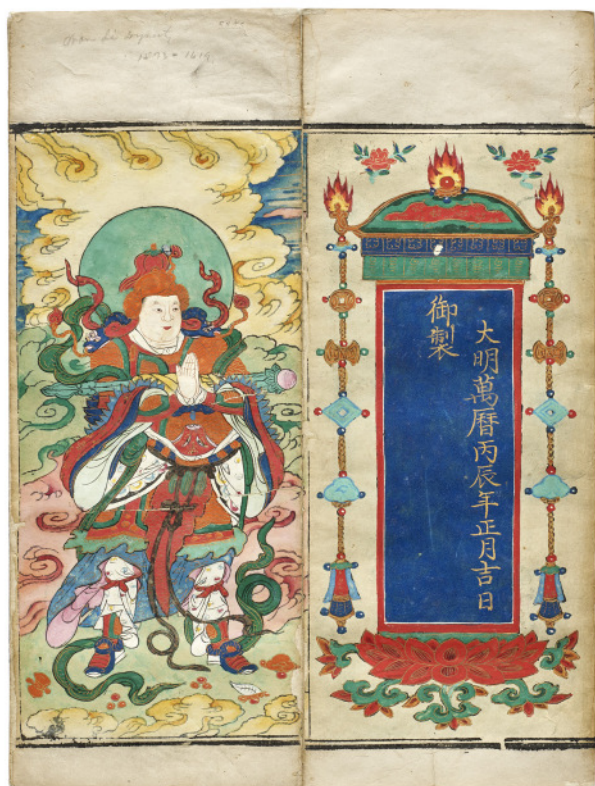 大明萬曆丙辰年正月吉日
御製